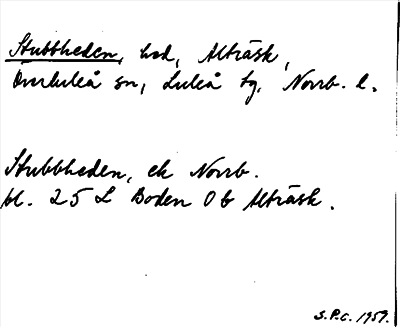 Stubbheden, hed, Alträsk,
Överluleå sn, Luleå tg. Norrb. l.
Stubbheden, ek Norrb.
bl. 25 L Boden 0 b Alträsk.
S.P.C. 1959.